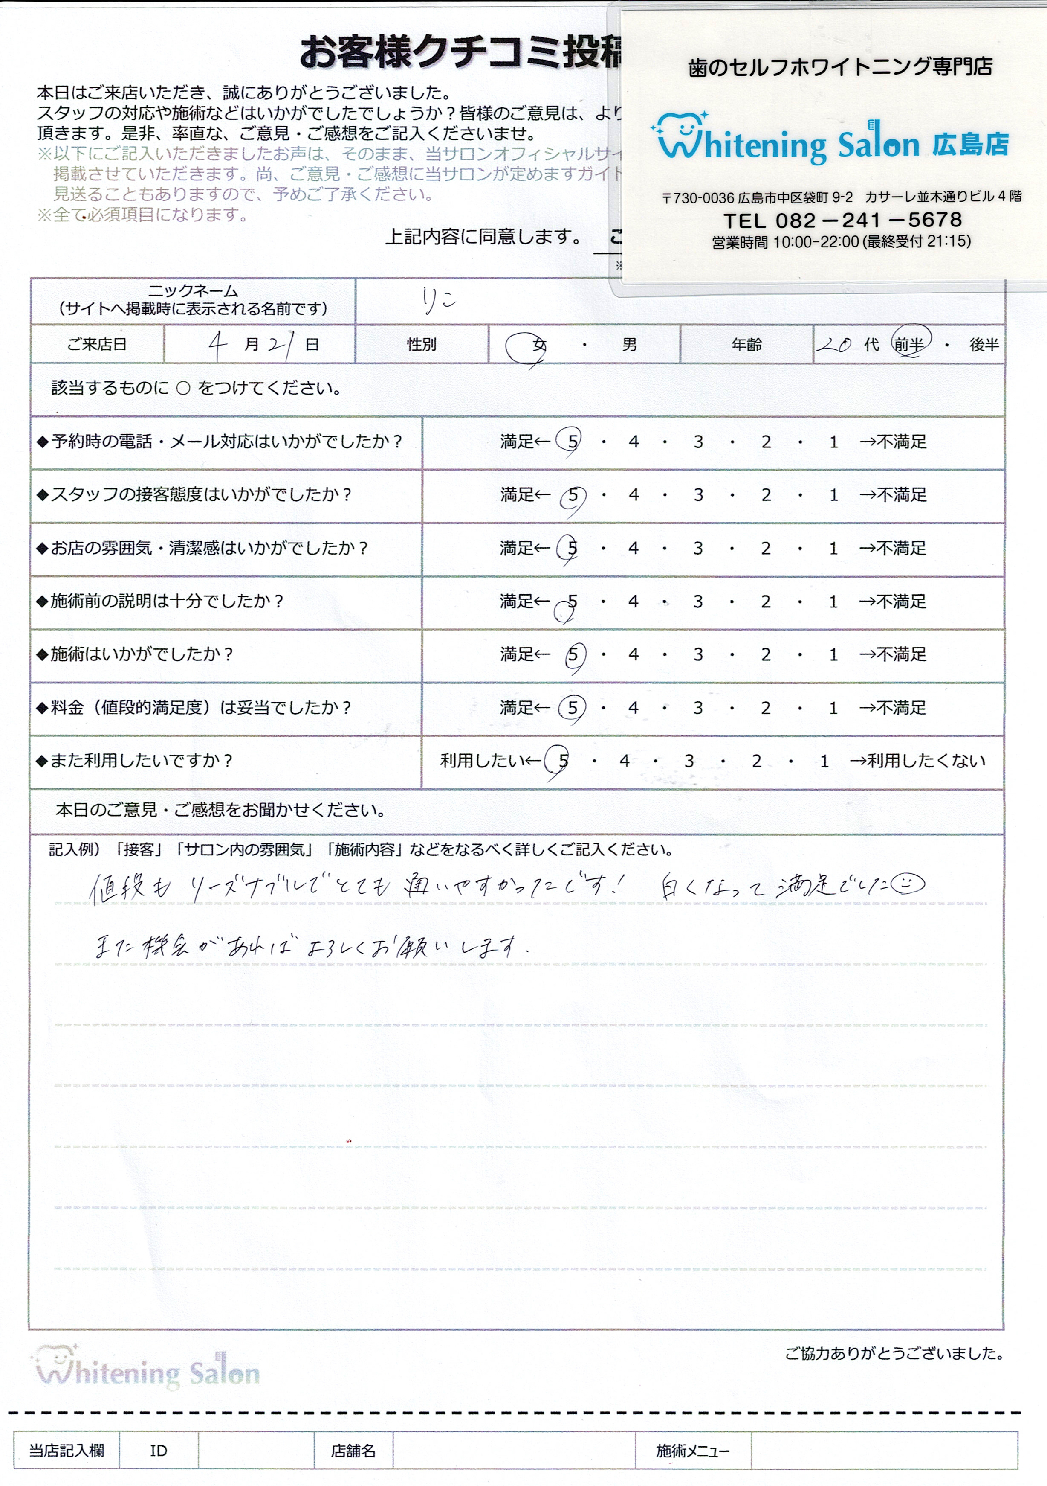 お客様クチコミ投稿
本日はご来店いただき、誠にありがとうございました。
スタッフの対応や施術などはいかがでしたでしょうか？皆様のご意見は、より
頂きます。是非、率直な、ご意見・ご感想をご記入くださいませ。
※以下にご記入いただきましたお声は、そのまま、当サロンオフィシャルサイ
掲載させていただきます。尚、ご意見・ご感想に当サロンが定めますガイト
見送ることもありますので、予めご了承ください。
※全て必須項目になります。
上記内容に同意します。
歯のセルフホワイトニング専門店
Whitening Salon 広島店
〒730-0036 広島市中区袋町 9-2 カサーレ並木通りビル 4 階
TEL 082－241－5678
営業時間 10:00-22:00 (最終受付 21:15)
ニックネーム
（サイトへ掲載時に表示される名前です） りこ
ご来店日 4 月 21 日 性別 女 ・ 男 年齢 20 代 前半 ・ 後半
該当するものに ○ をつけてください。
◆予約時の電話・メール対応はいかがでしたか？ 満足← 5 ・ 4 ・ 3 ・ 2 ・ 1 →不満足
◆スタッフの接客態度はいかがでしたか？ 満足← 5 ・ 4 ・ 3 ・ 2 ・ 1 →不満足
◆お店の雰囲気・清潔感はいかがでしたか？ 満足← 5 ・ 4 ・ 3 ・ 2 ・ 1 →不満足
◆施術前の説明は十分でしたか？ 満足← 5 ・ 4 ・ 3 ・ 2 ・ 1 →不満足
◆施術はいかがでしたか？ 満足← 5 ・ 4 ・ 3 ・ 2 ・ 1 →不満足
◆料金（値段的満足度）は妥当でしたか？ 満足← 5 ・ 4 ・ 3 ・ 2 ・ 1 →不満足
◆また利用したいですか？ 利用したい← 5 ・ 4 ・ 3 ・ 2 ・ 1 →利用したくない
本日のご意見・ご感想をお聞かせください。
記入例）「接客」「サロン内の雰囲気」「施術内容」などをなるべく詳しくご記入ください。
値段も リーズナブルでとても 通いやすかったです！ 白くなって満足でした
また機会があればよろしくお願いします.
ご協力ありがとうございました。
Whitening Salon
当店記入欄 ID 店舗名 施術メニュー